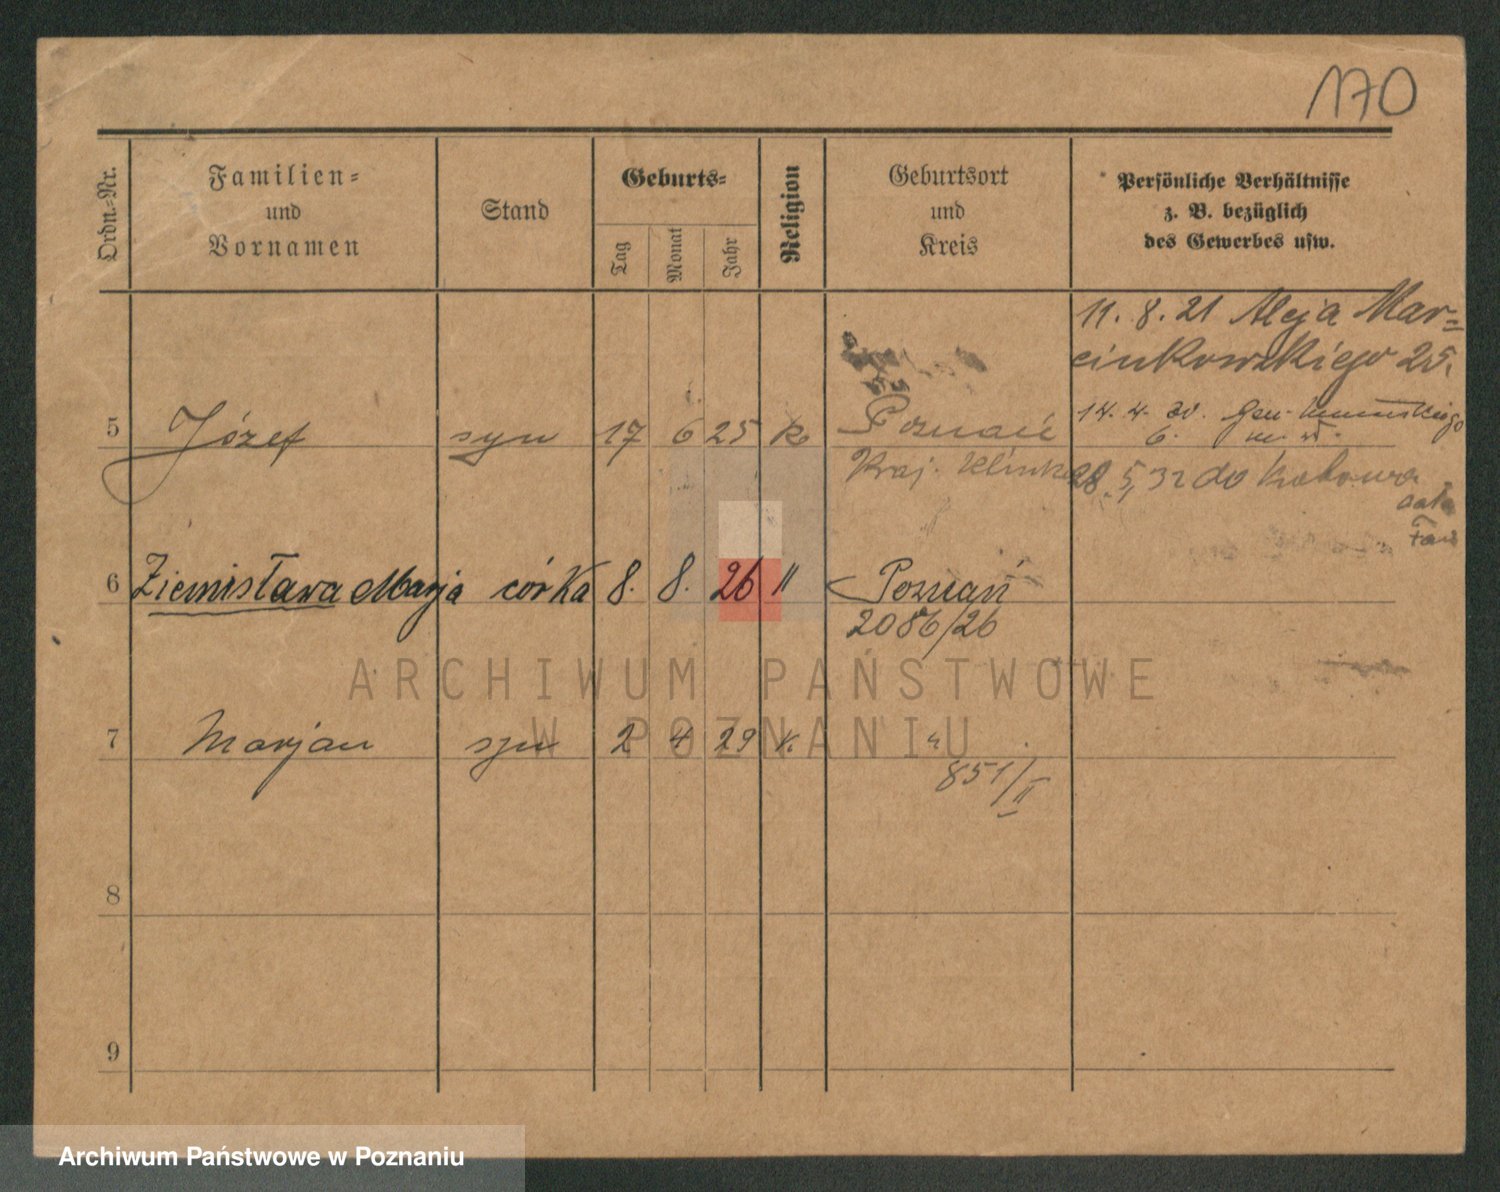 170
Ordn.-Nr.
Familien-
und
Vornamen
Stand
Geburts-
Tag
Monat
Jahr
Religion
Geburtsort
und
Kreis
Persönliche Verhältnisse
z. B. bezüglich
des Gewerbes usw.
11. 8. 21 Aleja Mar=
cinkowskiego 25.
14. 4. 30. Gen.
6.
5 Józef syn 17 6 25 k Poznań
Kraj.
28. 5, 32 do Krakowa
6 Ziemisława Marja córka 8. 8. 26 " Poznań
2086/26
ARCHIWUM PAŃSTWOWE
W POZNANIU
7 Marjan syn 2 4 29 k. "
851/II
8
9
Archiwum Państwowe w Poznaniu